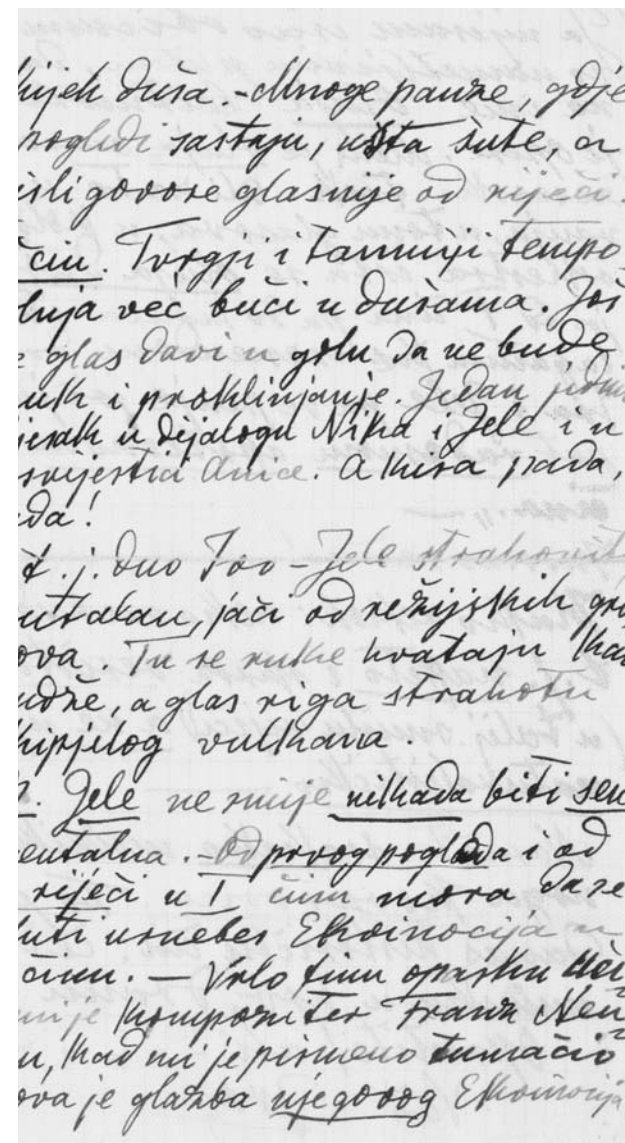 kijeh duša. - Mnoge pauze, gdje
pogledi sastaju, usta šute, a
isli govore glasnije od riječi.
čin. Tvrgji i tamniji tempo
luja već buči u dušama. Još
glas davi u grlu da ne bude
uk i proklinjanje. Jedan
u dijalogu Nika i Jele i u
svijestia Anice. A kiša pada,
da!
t. j. duo Ivo - Jele strahovit
utalan, jači od režijskih
ova. Tu se ruke hvataju kao
udže, a glas riga strahotu
kipjelog vulkana.
Jele ne smije nikada biti sen
entalna. - Od prvog pogleda i od
riječi u I činu mora da se
luti usnebes Ekvinocija
činu. - Vrlo finu opasku uči
mi je kompoziter Franz Neu
u, kad mi je pismeno tumačio
ova je glazba njegovog Ekvinocija